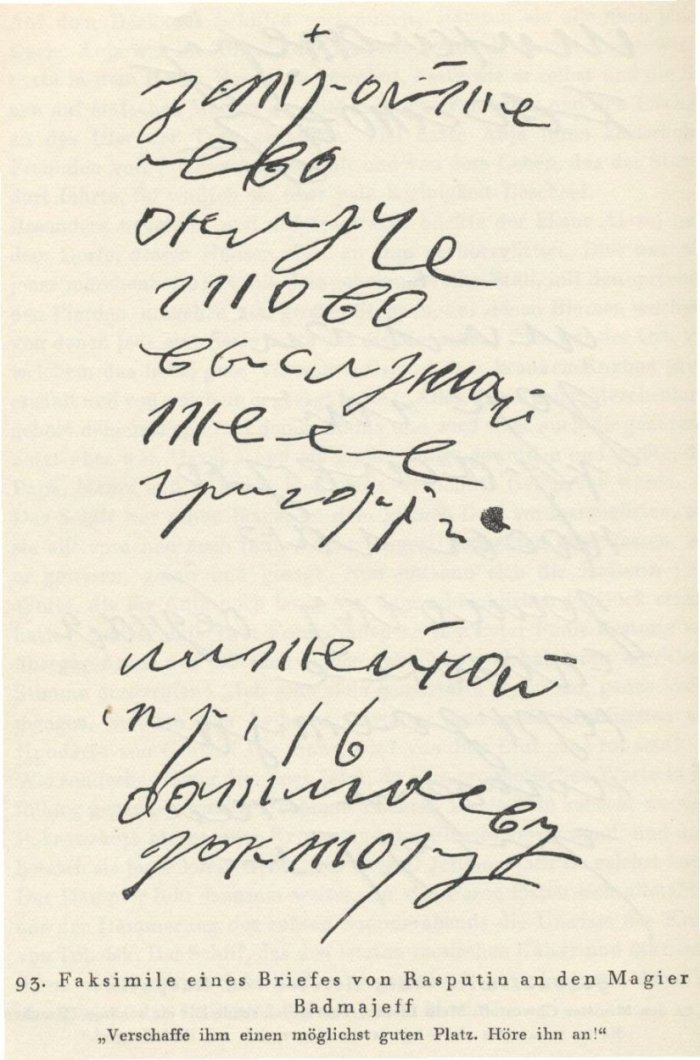 +
ево
тово
выслушай
григорий
литейной
пр, 16
батмаеву
доктору
93. Faksimile eines Briefes von Rasputin an den Magier
Badmajeff
„Verschaffe ihm einen möglichst guten Platz. Höre ihn an!“